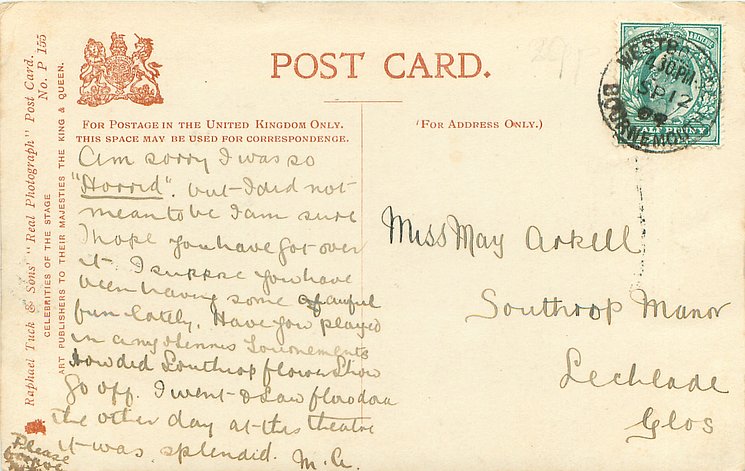 Raphael Tuck & Sons' "Real Photograph" Post Card.
No. P 155
CELEBRITIES OF THE STAGE
ART PUBLISHERS TO THEIR MAJESTIES THE KING & QUEEN.
POST CARD.
FOR POSTAGE IN THE UNITED KINGDOM ONLY.
THIS SPACE MAY BE USED FOR CORRESPONDENCE.
(FOR ADDRESS ONLY.)
BOURNEMOUTH
4.30PM
SP 12
HALF PENNY
Am sorry I was so
"Horrid". but I did not
mean to be I am sure
I hope you have got over
it. I suppose you have
been having some awful
fun lately. Have you played
in any Tennis Tournements
How did Southrop flower Show
go off. I went & saw florodora
the other day at this theatre
it was splendid. M.A.
Please
Miss May Arkell
Southrop Manor
Lechlade
Glos